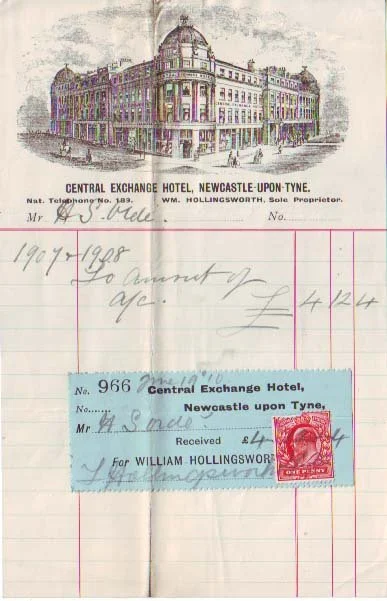 CENTRAL EXCHANGE HOTEL, NEWCASTLE-UPON-TYNE.
Nat. Telephone No. 183. WM. HOLLINGSWORTH, Sole Proprietor.
Mr H S. Orde. No.
1907 & 1908
To amount of
a/c. £ 4 12 4
No. 966 June 10 Central Exchange Hotel,
No...... Newcastle upon Tyne,
Mr H S Orde
Received £4 4
For WILLIAM HOLLINGSWOR
Hollingsworth
ONE PENNY